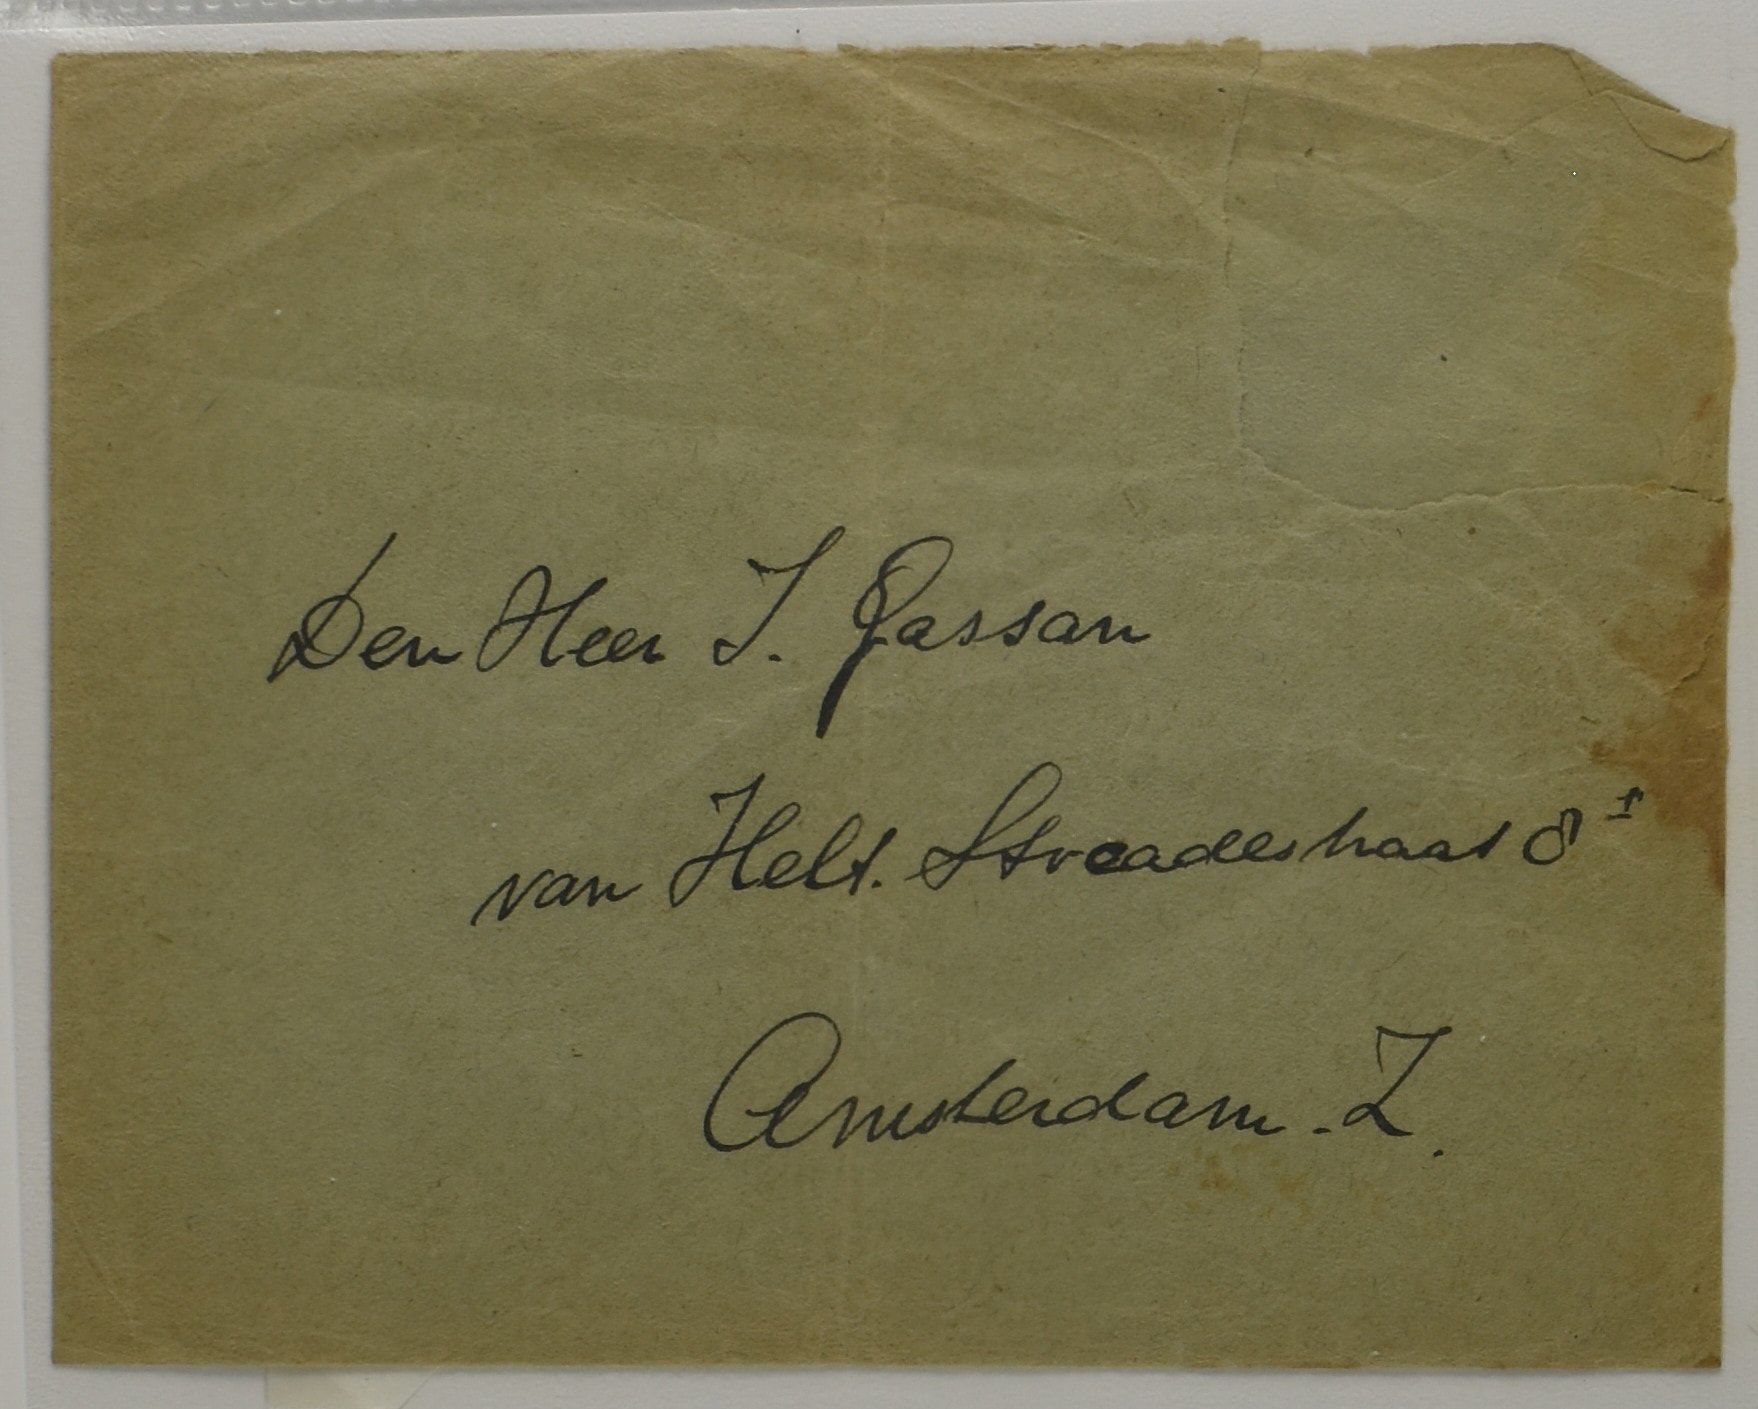 Den Heer I. Gassan
van Helt. Stocadestraat 8 I
Amsterdam. Z.